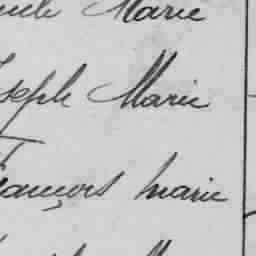 Marie
Joseph Marie
François Marie